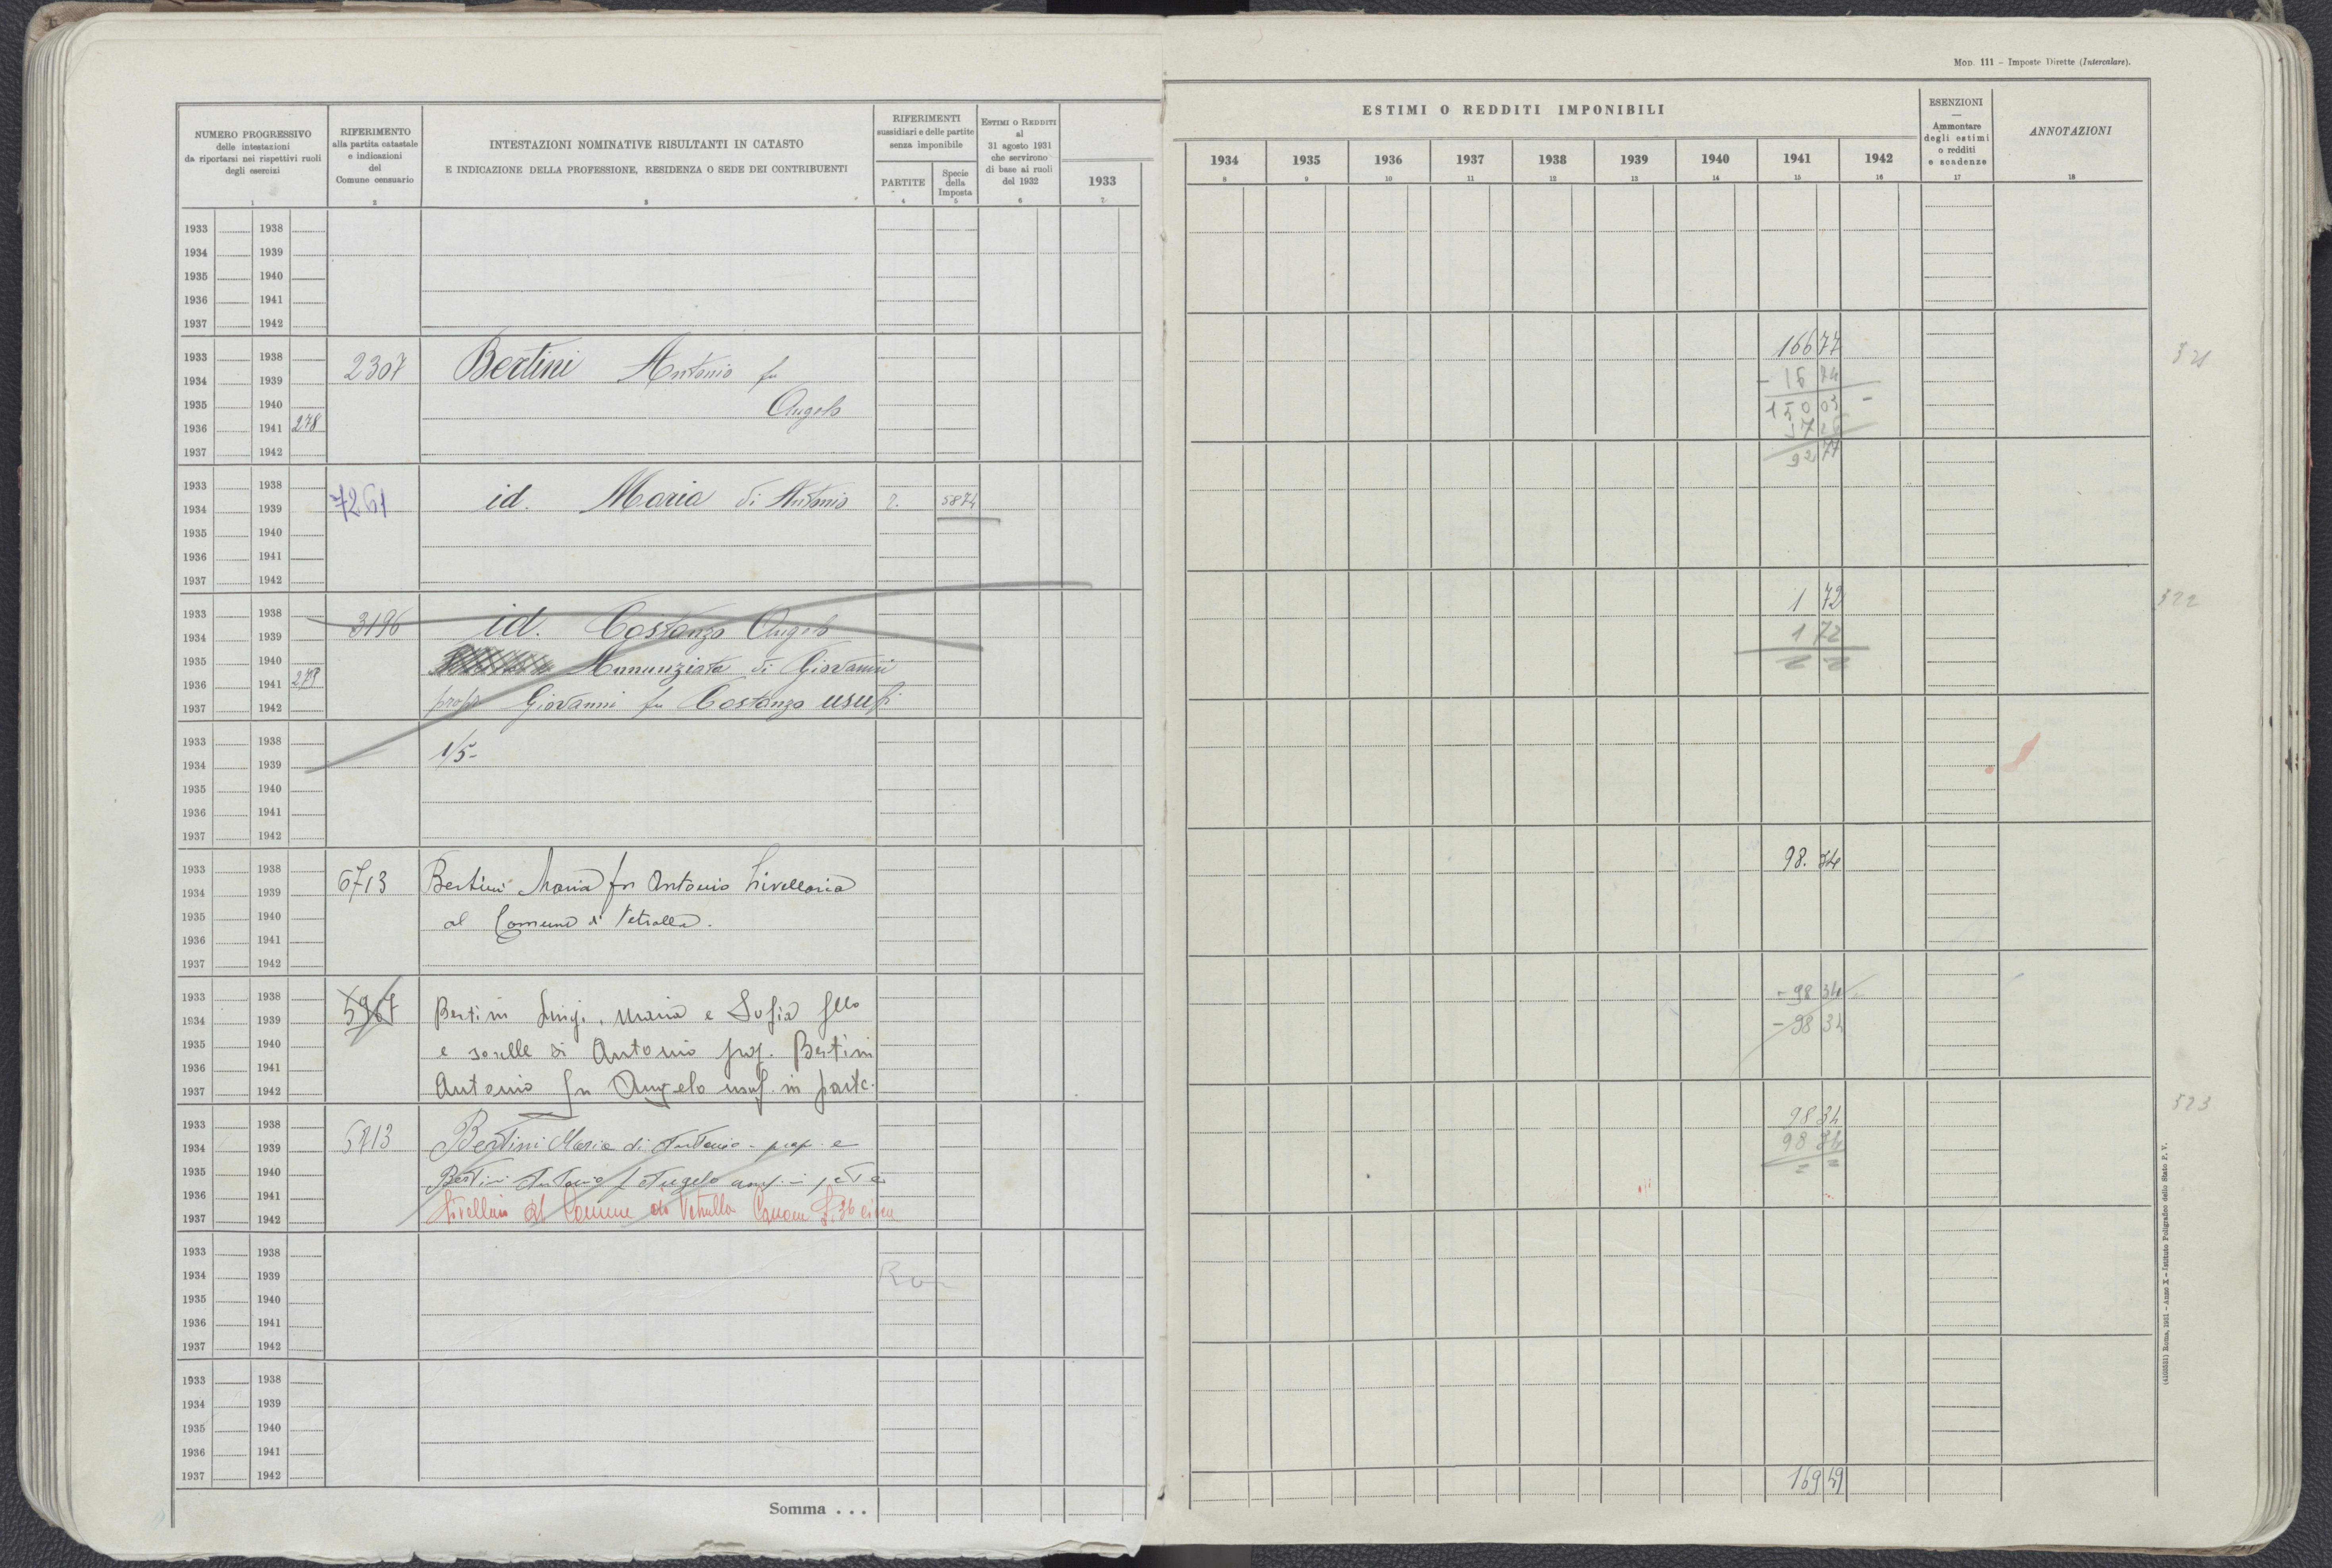 Mod. 111 – Imposte Dirette (Intercalare).
NUMERO PROGRESSIVO
delle intestazioni
da riportarsi nei rispettivi ruoli
degli esercizi
1
RIFERIMENTO
alla partita catastale
e indicazioni
del
Comune censuario
2
INTESTAZIONI NOMINATIVE RISULTANTI IN CATASTO
E INDICAZIONE DELLA PROFESSIONE, RESIDENZA O SEDE DEI CONTRIBUENTI
3
RIFERIMENTI
sussidiari e delle partite
senza imponibile
PARTITE
4
Specie
della
Imposta
5
ESTIMI O REDDITI
al
31 agosto 1931
che servirono
di base ai ruoli
del 1932
6
1933
7
ESTIMI O REDDITI IMPONIBILI
1934 1935 1936 1937 1938 1939 1940 1941 1942
8 9 10 11 12 13 14 15 16
ESENZIONI
—
Ammontare
degli estimi
o redditi
e scadenze
17
ANNOTAZIONI
18
1933 1938
1934 1939
1935 1940
1936 1941
1937 1942
1933 1938 166 77
1934 1939 2307 Bertini Antonio fu
1935 1940 Angelo 150 03
1936 1941 278
1937 1942 92 77
1933 1938
1934 1939 7261 id. Maria di Antonio 2. 5874
1935 1940
1936 1941
1937 1942
1933 1938 1 72 322
1934 1939 3196 id. Costanzo Angelo 1 72
1935 1940 Annunziata di Giovanni
1936 1941 279
1937 1942 prop Giovanni fu Costanzo usuf
1933 1938 1/5-
1934 1939
1935 1940
1936 1941
1937 1942
1933 1938 98. 34
1934 1939 6713 Bertini Maria fu Antonio livellaria
1935 1940 al Comune di Vetralla.
1936 1941
1937 1942
1933 1938 - 98 34
1934 1939 5967 Bertini Luigi, Maria e Sofia fllo - 98 34
1935 1940 e sorelle di Antonio prop. Bertini
1936 1941
1937 1942 Antonio fu Angelo usuf. in parte.
1933 1938 98 34 323
1934 1939 6713 Bertini Maria di Antonio - prop. e 98 34
1935 1940 Bertini Antonio f Angelo usuf. in parte
1936 1941
1937 1942 livellari al Comune di Vetralla
1933 1938
1934 1939
1935 1940
1936 1941
1937 1942
1933 1938
1934 1939
1935 1940
1936 1941
1937 1942 169 49
Somma . . .
(4105551) Roma, 1931 – Anno X – Istituto Poligrafico dello Stato P. V.